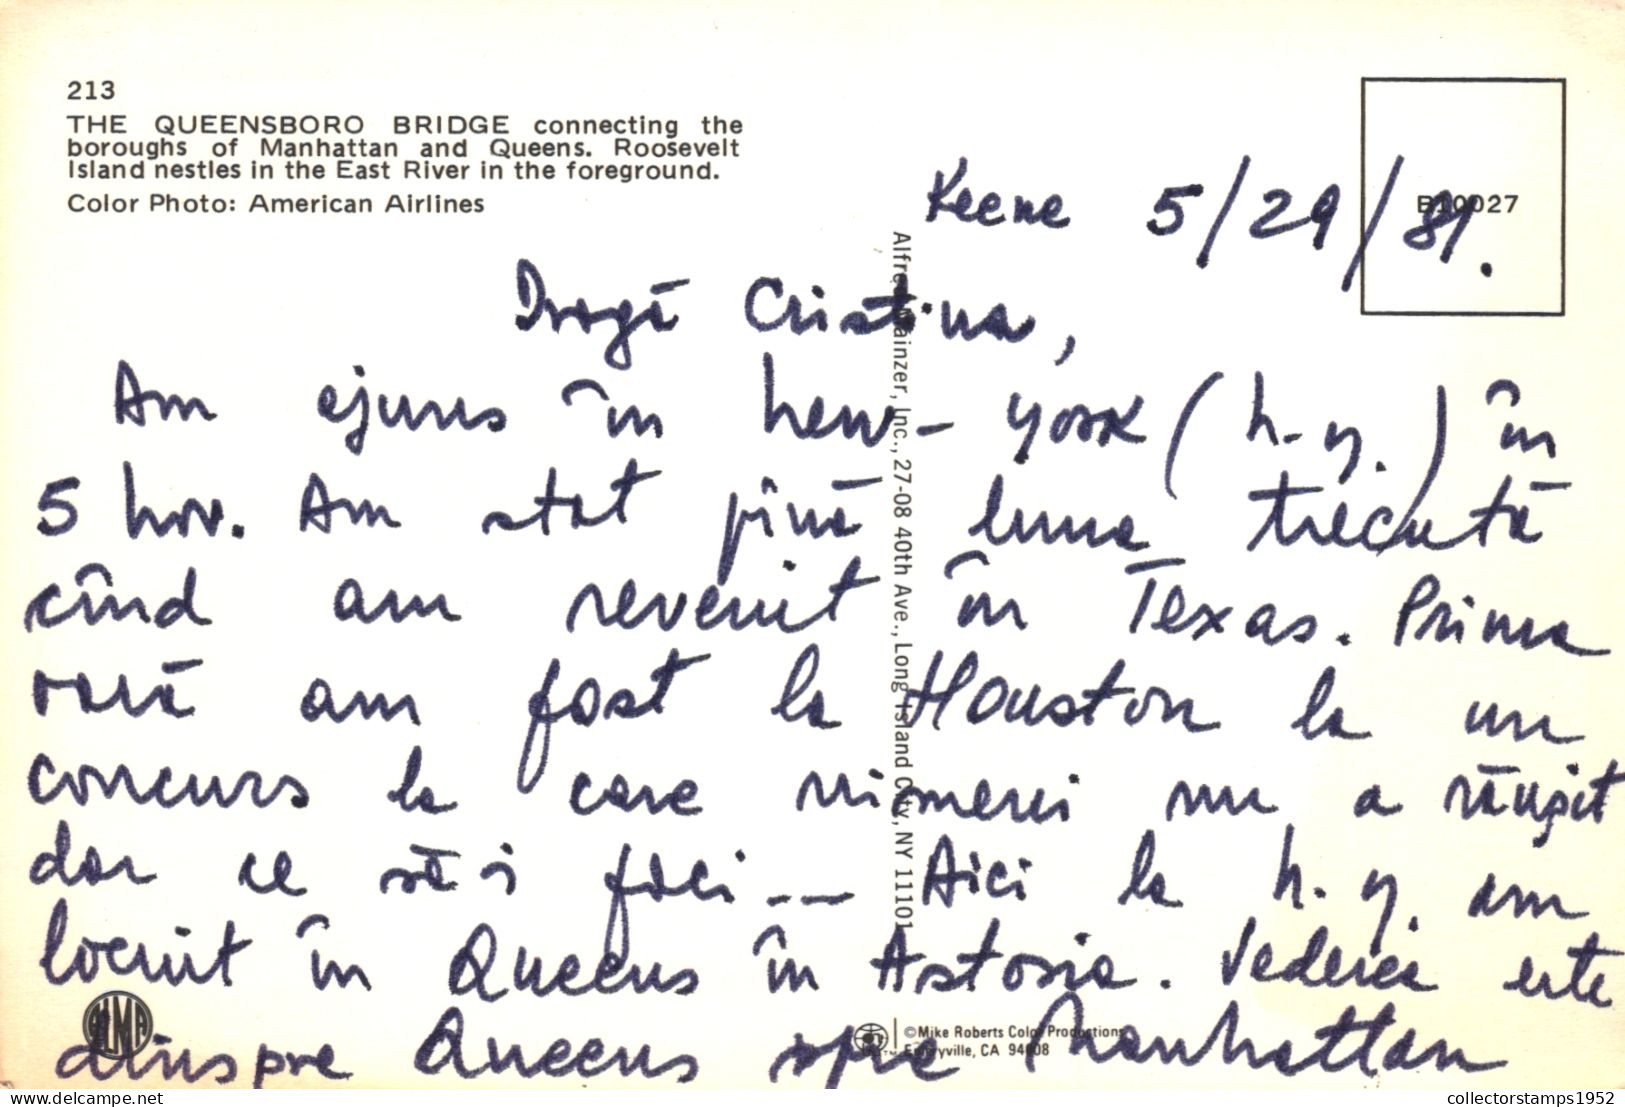 213
THE QUEENSBORO BRIDGE connecting the
boroughs of Manhattan and Queens. Roosevelt
Island nestles in the East River in the foreground.
Color Photo: American Airlines
B10027
Keene 5/29/81.
Dragă Cristina,
Am ajuns în New-York (N.Y.) în
5 Nov. Am stat pînă luna trecută
cînd am revenit în Texas. Prima
oară am fost la Houston la un
concurs la care nimeni nu a reuşit
dar ce să-i faci... Aici la N.Y. am
locuit în Queens în Astoria. Vederea este
dinspre Queens spre Manhattan
Alfred Mainzer, Inc., 27-08 40th Ave., Long Island City, NY 11101
ALMA
©Mike Roberts Color Productions
Emeryville, CA 94608
delcampe.net
collectorstamps1952